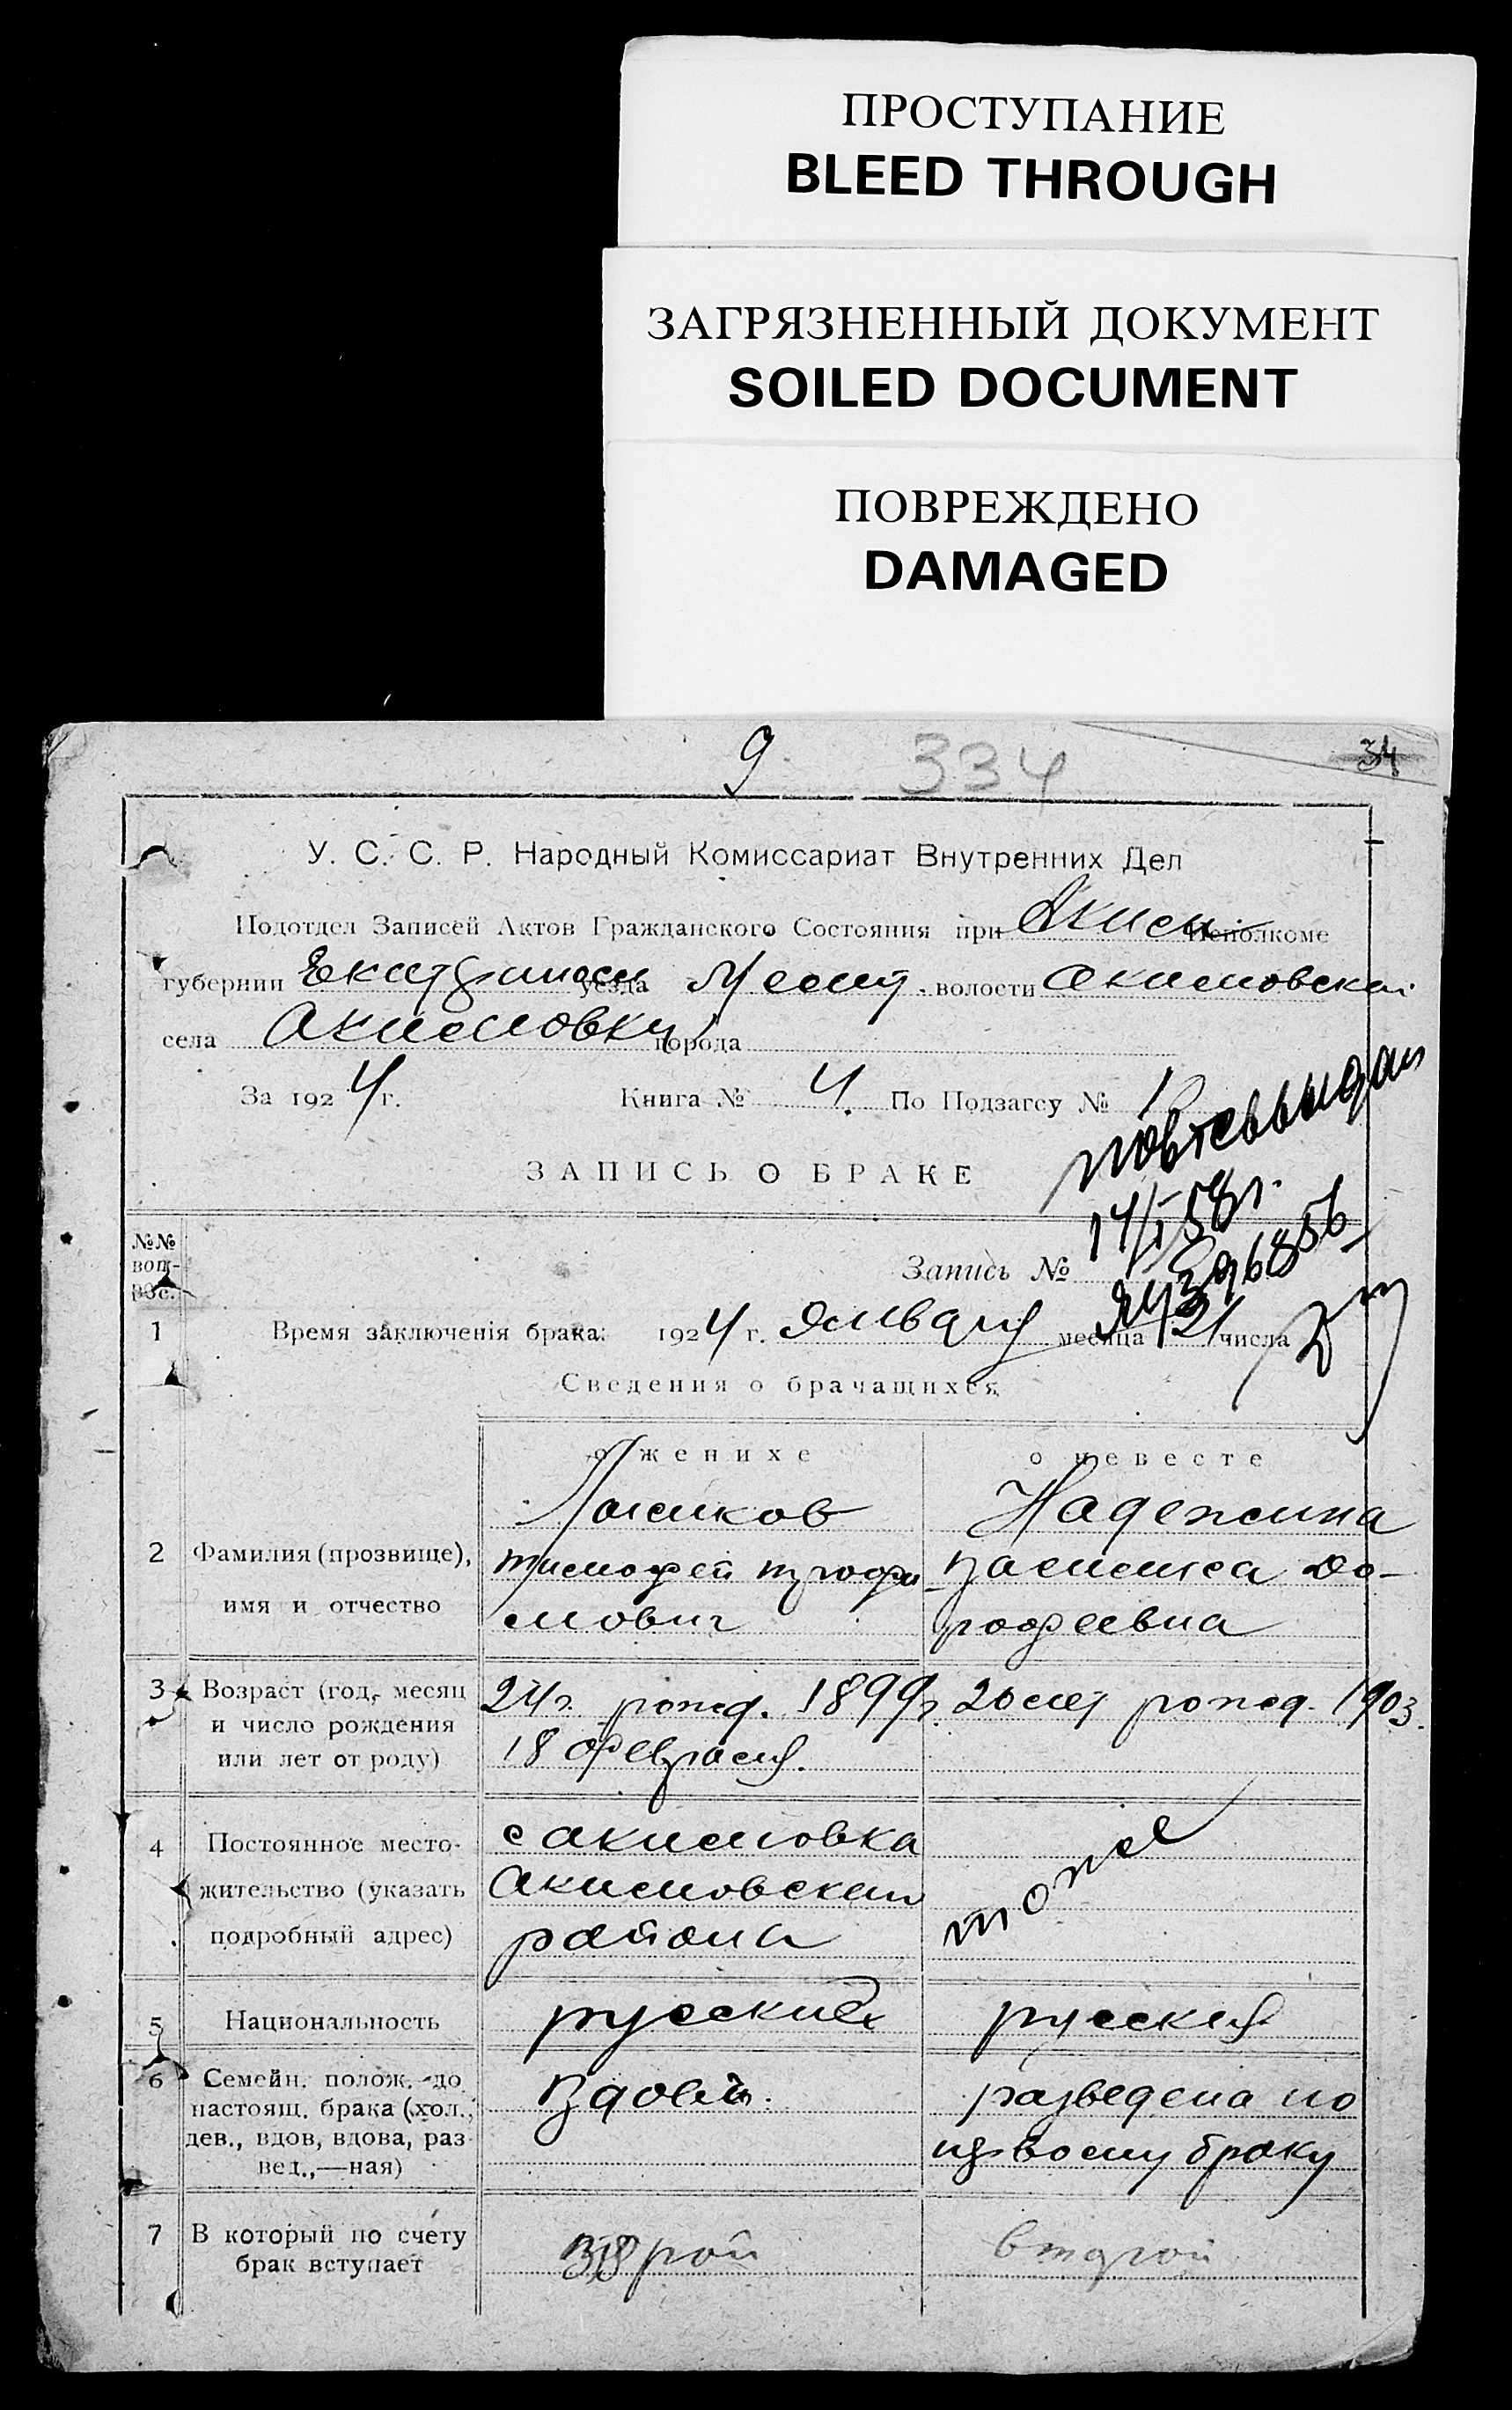 ПРОСТУПАНИЕ
BLEED THROUGH
ЗАГРЯЗНЕННЫЙ ДОКУМЕНТ
SOILED DOCUMENT
ПОВРЕЖДЕНО
DAMAGED
9 334 34
У. С. С. Р. Народный Комиссариат Внутренних Дел
Подотдел Записей Актов Гражданского Состояния при Аким Исполкоме
губернии уезда Мелит. волости Акимовской
села Акимовки города
За 1924 г. Книга № 4. По Подзагсу № 1
ЗАПИСЬ О БРАКЕ
14/I 58г.
№№ вопрос.
Запись №
1 Время заключенія брака: 1924 г. Января месяца 21 числа
Сведения о брачащихся
о женихе о невесте
Надежкина
2 Фамилия (прозвище), Тимофей Трофи- Василиса До-
имя и отчество мович рофеевна
3 Возраст (год, месяц 24 г. рожд. 1899 г. 20 лет рожд. 1903.
и число рождения 18 февраля.
или лет от роду)
4 Постоянное место- с Акимовка тоже
жительство (указать Акимовского
подробный адрес) района
5 Национальность русский русская
6 Семейн. полож. до вдовец. разведена по
настоящ. брака (хол., первому браку
дев., вдов, вдова, раз-
вед.,—ная)
7 В который по счету второй второй
брак вступает